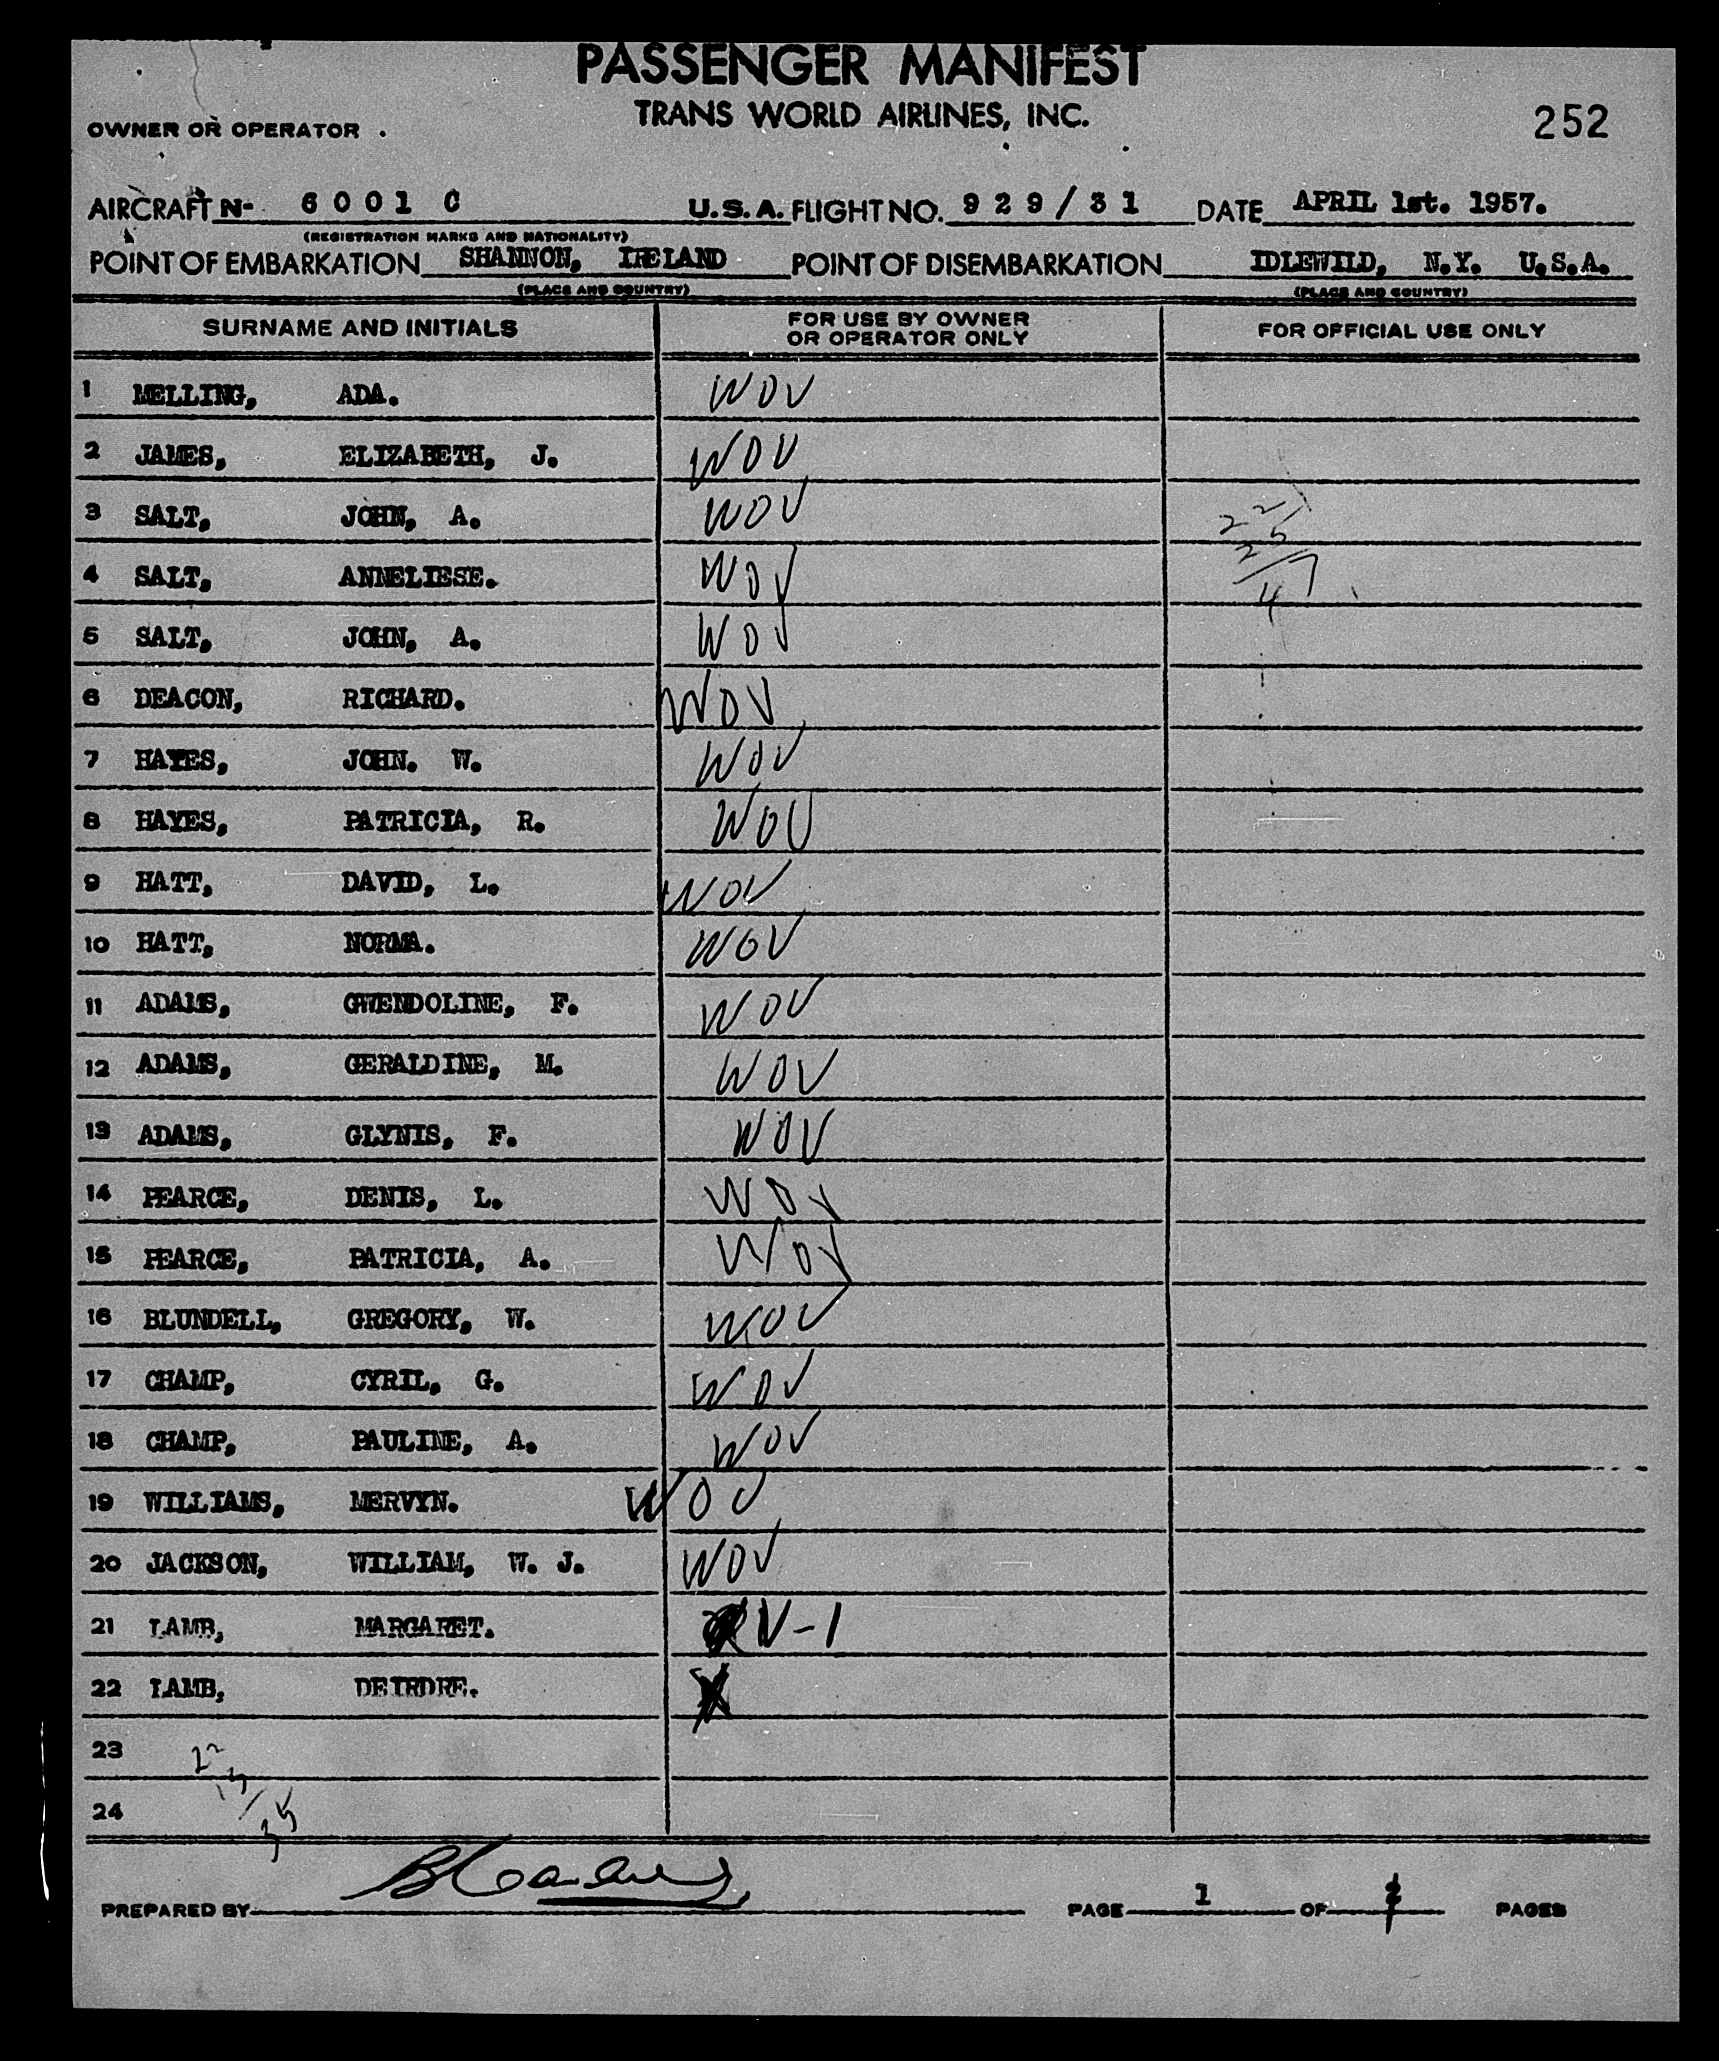 PASSENGER MANIFEST
TRANS WORLD AIRLINES, INC.
OWNER OR OPERATOR
252
AIRCRAFT N- 6001 C U.S.A. FLIGHT NO. 929/31 DATE APRIL 1st. 1957.
(REGISTRATION MARKS AND NATIONALITY)
POINT OF EMBARKATION SHANNON, IRELAND POINT OF DISEMBARKATION IDLEWILD, N.Y. U.S.A.
(PLACE AND COUNTRY) (PLACE AND COUNTRY)
SURNAME AND INITIALS FOR USE BY OWNER OR OPERATOR ONLY FOR OFFICIAL USE ONLY
1 MELLING, ADA. WOV
2 JAMES, ELIZABETH, J. WOV
3 SALT, JOHN, A. WOV
4 SALT, ANNELIESE. WOV
5 SALT, JOHN, A. WOV
6 DEACON, RICHARD. WOV
7 HAYES, JOHN. W. WOV
8 HAYES, PATRICIA, R. WOV
9 HATT, DAVID, L. WOV
10 HATT, NORMA. WOV
11 ADAMS, GWENDOLINE, F. WOV
12 ADAMS, GERALDINE, M. WOV
13 ADAMS, GLYNIS, F. WOV
14 PEARCE, DENIS, L. WOV
15 PEARCE, PATRICIA, A. WOV
16 BLUNDELL, GREGORY, W. WOV
17 CHAMP, CYRIL, G. WOV
18 CHAMP, PAULINE, A. WOV
19 WILLIAMS, MERVYN. WOV
20 JACKSON, WILLIAM, W. J. WOV
21 LAMB, MARGARET. V-1
22 LAMB, DEIRDRE.
23
24
PREPARED BY PAGE 1 OF PAGES